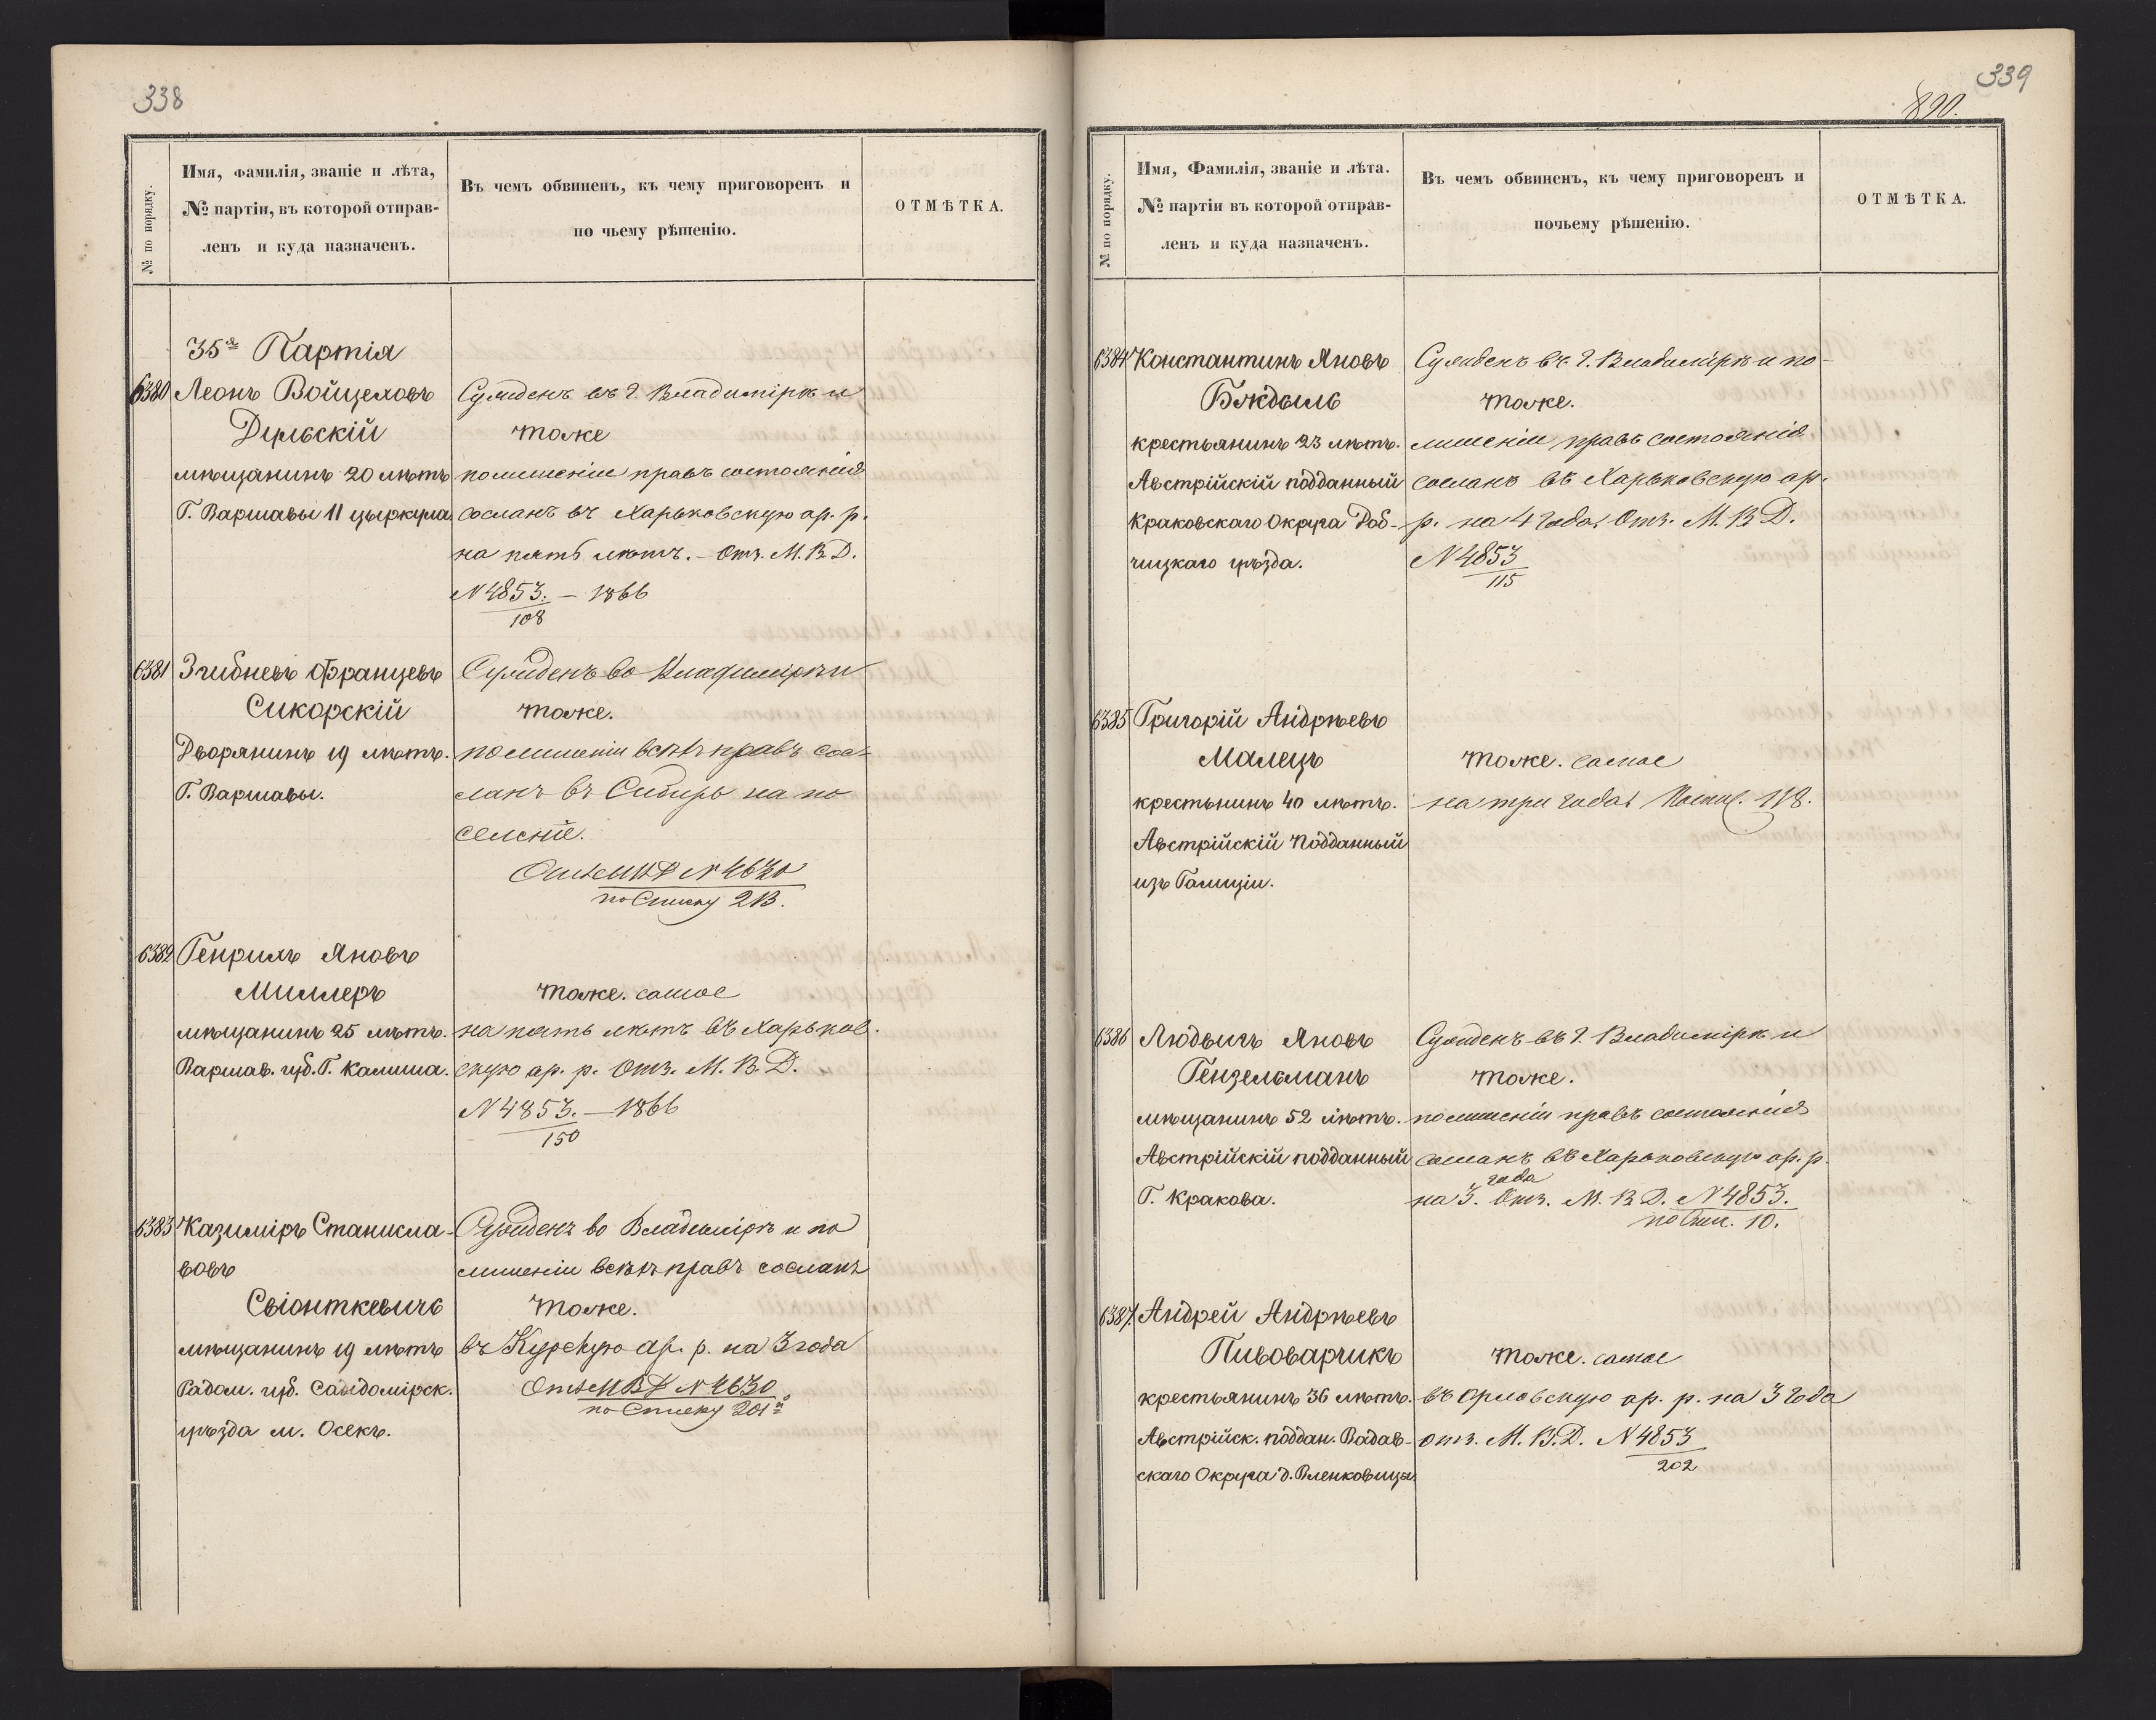 338
№ по порядку.
Имя, фамилія, званіе и лѣта,
№ партіи, въ которой отправ-
ленъ и куда назначенъ.
Въ чемъ обвиненъ, къ чему приговоренъ и
по чьему рѣшенію.
ОТМѢТКА.
35я Партія
6380 Леонъ Войцеховъ
Дульскій
мѣщанинъ 20 лѣтъ
Г. Варшавы 11 цыркула
Сужденъ въ г. Владимірѣ и
тоже
по лишеніи правъ состоянія
сосланъ въ Харьковскую ар. р.
на пять лѣтъ. - Отз. М. В. Д.
N 4853. - 1866
108
6381 Згибневъ Францевъ
Сикорскій
Дворянинъ 19 лѣтъ.
Г. Варшавы.
Сужденъ во Владимірѣ и
тоже.
по лишеніи всѣхъ правъ сос-
ланъ въ Сибирь на по
селеніе.
Отз МВД N 4630
по Списку 213.
6382 Генрихъ Яновъ
Миллеръ
мѣщанинъ 25 лѣтъ.
Варшав. губ. Г. Калиша.
тоже. самое
на пять лѣтъ въ Харьков
скую ар. р. Отз. М. В. Д.
N 4853. - 1866
150
6383 Казиміръ Станисла-
вовъ
Свіонткевичъ
мѣщанинъ 19 лѣтъ
Радом. губ. Сандомірск.
уѣзда м. Осекъ.
Сужденъ во Владимірѣ и по
лишеніи всѣхъ правъ сосланъ
тоже.
въ Курскую ар. р. на 3 года
Отз МВД N 4630
по Списку 201й
339
890.
№ по порядку.
Имя, Фамилія, званіе и лѣта.
№ партіи въ которой отправ-
ленъ и куда назначенъ.
Въ чемъ обвиненъ, къ чему приговоренъ и
почьему рѣшенію.
ОТМѢТКА.
6384 Константинъ Яновъ
Бждыль
крестьянинъ 23 лѣтъ.
Австрійскій подданный
Краковскаго Округа Доб-
чицкаго уѣзда.
Сужденъ въ г. Владимірѣ и по-
тоже.
лишеніи правъ состоянія
сосланъ въ Харьковскую ар.
р. на 4 года, Отз. М. В. Д.
N 4853
115
6385 Григорій Андрѣевъ
Малецъ
крестьнинъ 40 лѣтъ.
Австрійскій Подданный
изъ Галиціи.
тоже. самое
на три года 118.
6386 Людвигъ Яновъ
Гензельманъ
мѣщанинъ 52 лѣтъ.
Австрійскій подданный
Г. Кракова.
Сужденъ въ г. Владимірѣ и
тоже.
по лишеніи правъ состоянія
сосланъ въ Харьковскую ар. р.
года
на 3. Отз. М. В. Д. N 4853.
по Спи. 10.
6387 Андрей Андрѣевъ
Пивоварчикъ
крестьянинъ 36 лѣтъ.
Австрійск. поддан. Вадав-
скаго Округа д. Вленковицы
тоже. самое
въ Орловскую ар. р. на 3 года
отз. М. В. Д. N 4853
202